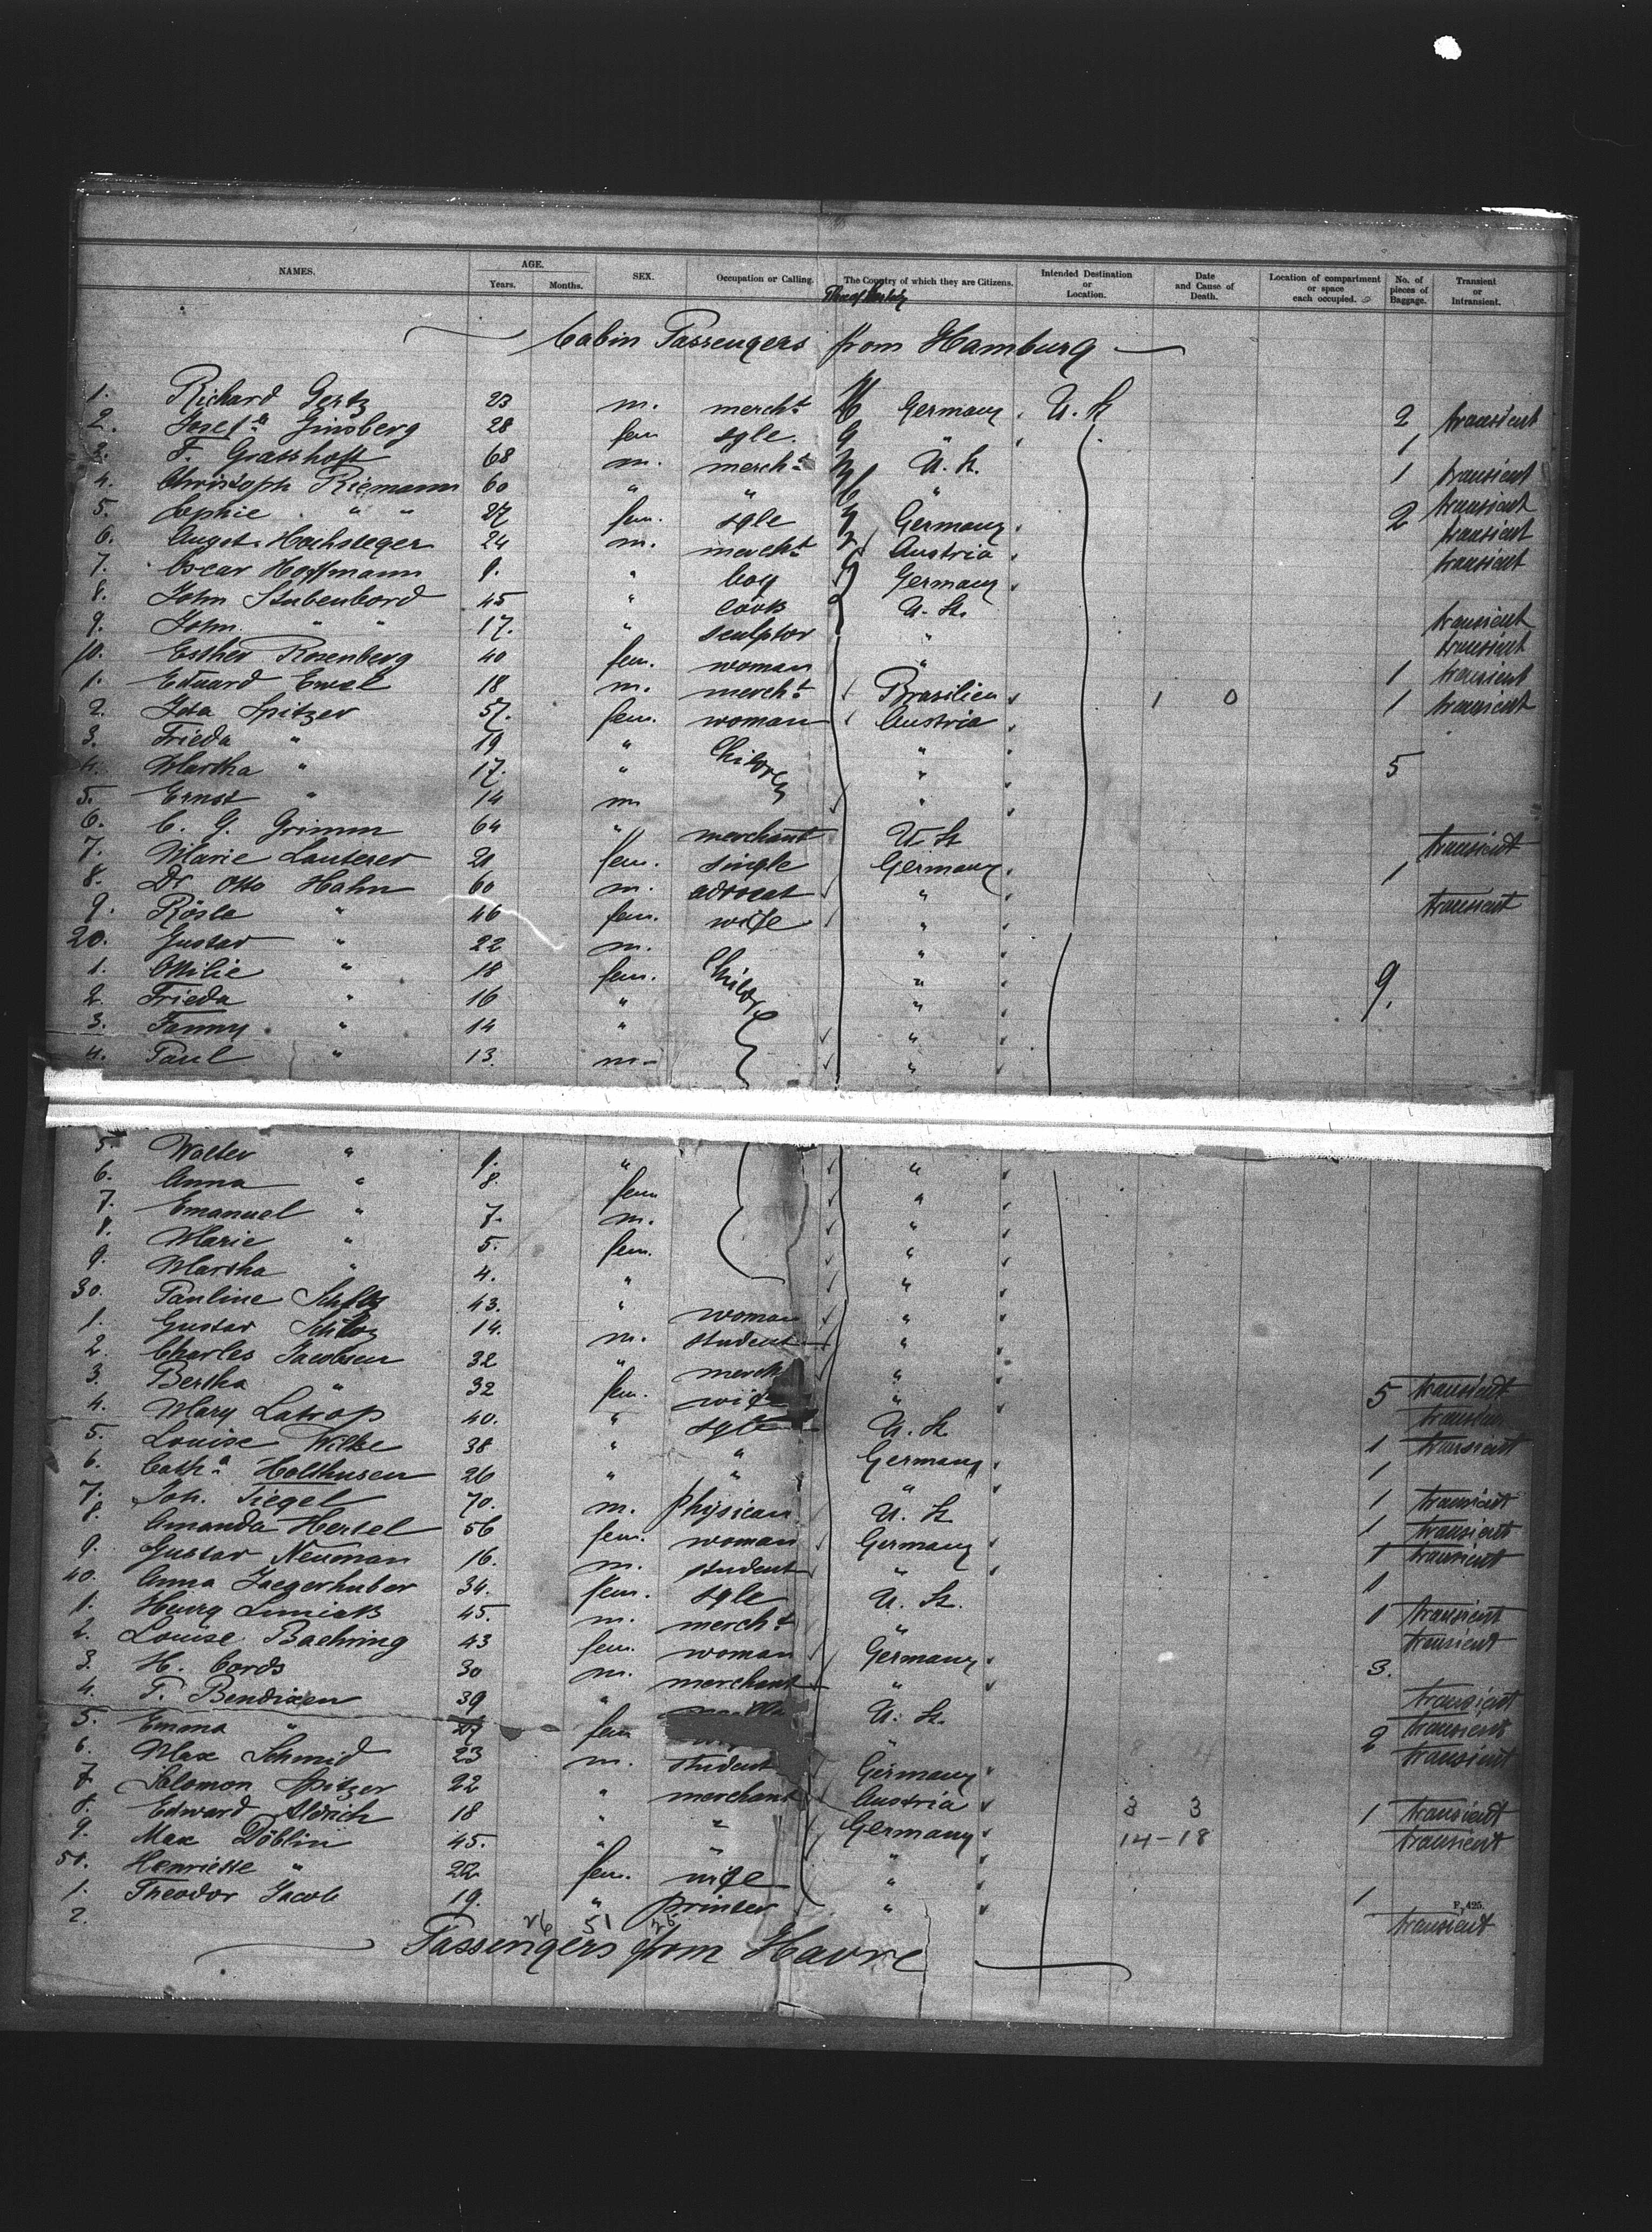 NAMES. AGE. Years. Months. SEX. Occupation or Calling. The Country of which they are Citizens. Intended Destination or Location. Date and Cause of Death. Location of compartment or space each occupied. No. of pieces of Baggage. Transient or Intransient.
Cabin Passengers from Hamburg
1. Richard Gertz 23 m. mercht Germany U. St. 2 transient
2. Josef.a Ginsberg 28 fem sgle. " 1
3. F. Grasshoff 68 m. mercht U. St. 1 transient
4. Christoph Riemann 60 " " " transient
5. Sophie " " 27 fem. sgle Germany 2 transient
6. Augst. Hochsteger 24 m. mercht Austria transient
7. Oscar Hoffmann 9. " boy Germany
8. John Stubenbord 45 " cook U. St. transient
9. John " " 17. " sculptor " transient
10. Esther Rosenberg 40 fem. woman " 1 transient
1. Eduard Ewel 18 m. mercht Brasilien 1 0 1 transient
2. Jda Spitzer 57. fem. woman Austria
3. Frieda " 19 " Children "
4. Martha " 17. " " 5
5. Ernst " 14 m "
6. C. G. Grimm 64 " merchant U. St transient
7. Marie Lauterer 21 fem. single Germany 1
8. Dr Otto Hahn 60 m. advocat " transient
9. Rösle " 46 fem. wife "
20. Gustav " 22 m. "
1. Ottilie " 18 fem. Childr "
2. Frieda " 16 " " 9.
3. Fanny " 14 " "
4. Paul " 13. m- "
5. Walter " 9. " "
6. Anna " 8. fem "
7. Emanuel " 7. m. "
8. Marie " 5. fem. "
9. Martha " 4. " "
30. Pauline 43. " woman "
1. Gustav 14. m. student "
2. Charles Jacobsen 32 " merch "
3. Bertha " 32 fem. wife " 5 transient
4. Mary Latrop 40. " sgle U. St. transient
5. Louise Wilke 38 " " Germany 1 transient
6. Cath.a Holthusen 26 " " " 1
7. Joh. Tiegel 70. m. physican U. St 1 transient
8. Amanda Hertel 56 fem. woman Germany 1 transient
9. Gustav Neuman 16. m. student " 1 transient
40. Anna Jaegerhuber 34. fem. sgle U. St. 1
1. Henry 45. m. mercht " 1 transient
2. Louise Baehring 43 fem. woman Germany transient
3. H. Cords 30 m. merchant " 3.
4. T. Bendixen 39 " U. St. transient
5. Emma " 27 fem " 2 transient
6. Max Schmid 23 m. student Germany transient
7. Salomon Spitzer 22 " merchant Austria 3 3
8. Edward Aldrich 18 " " Germany 14-18 1 transient
9. Max Döblin 45. " " " transient
50. Henriette " 22 fem. wife "
1. Theodor Jacob 19. " printer " 1
2. F. 425. transient
26 51 26
Passengers from Havre